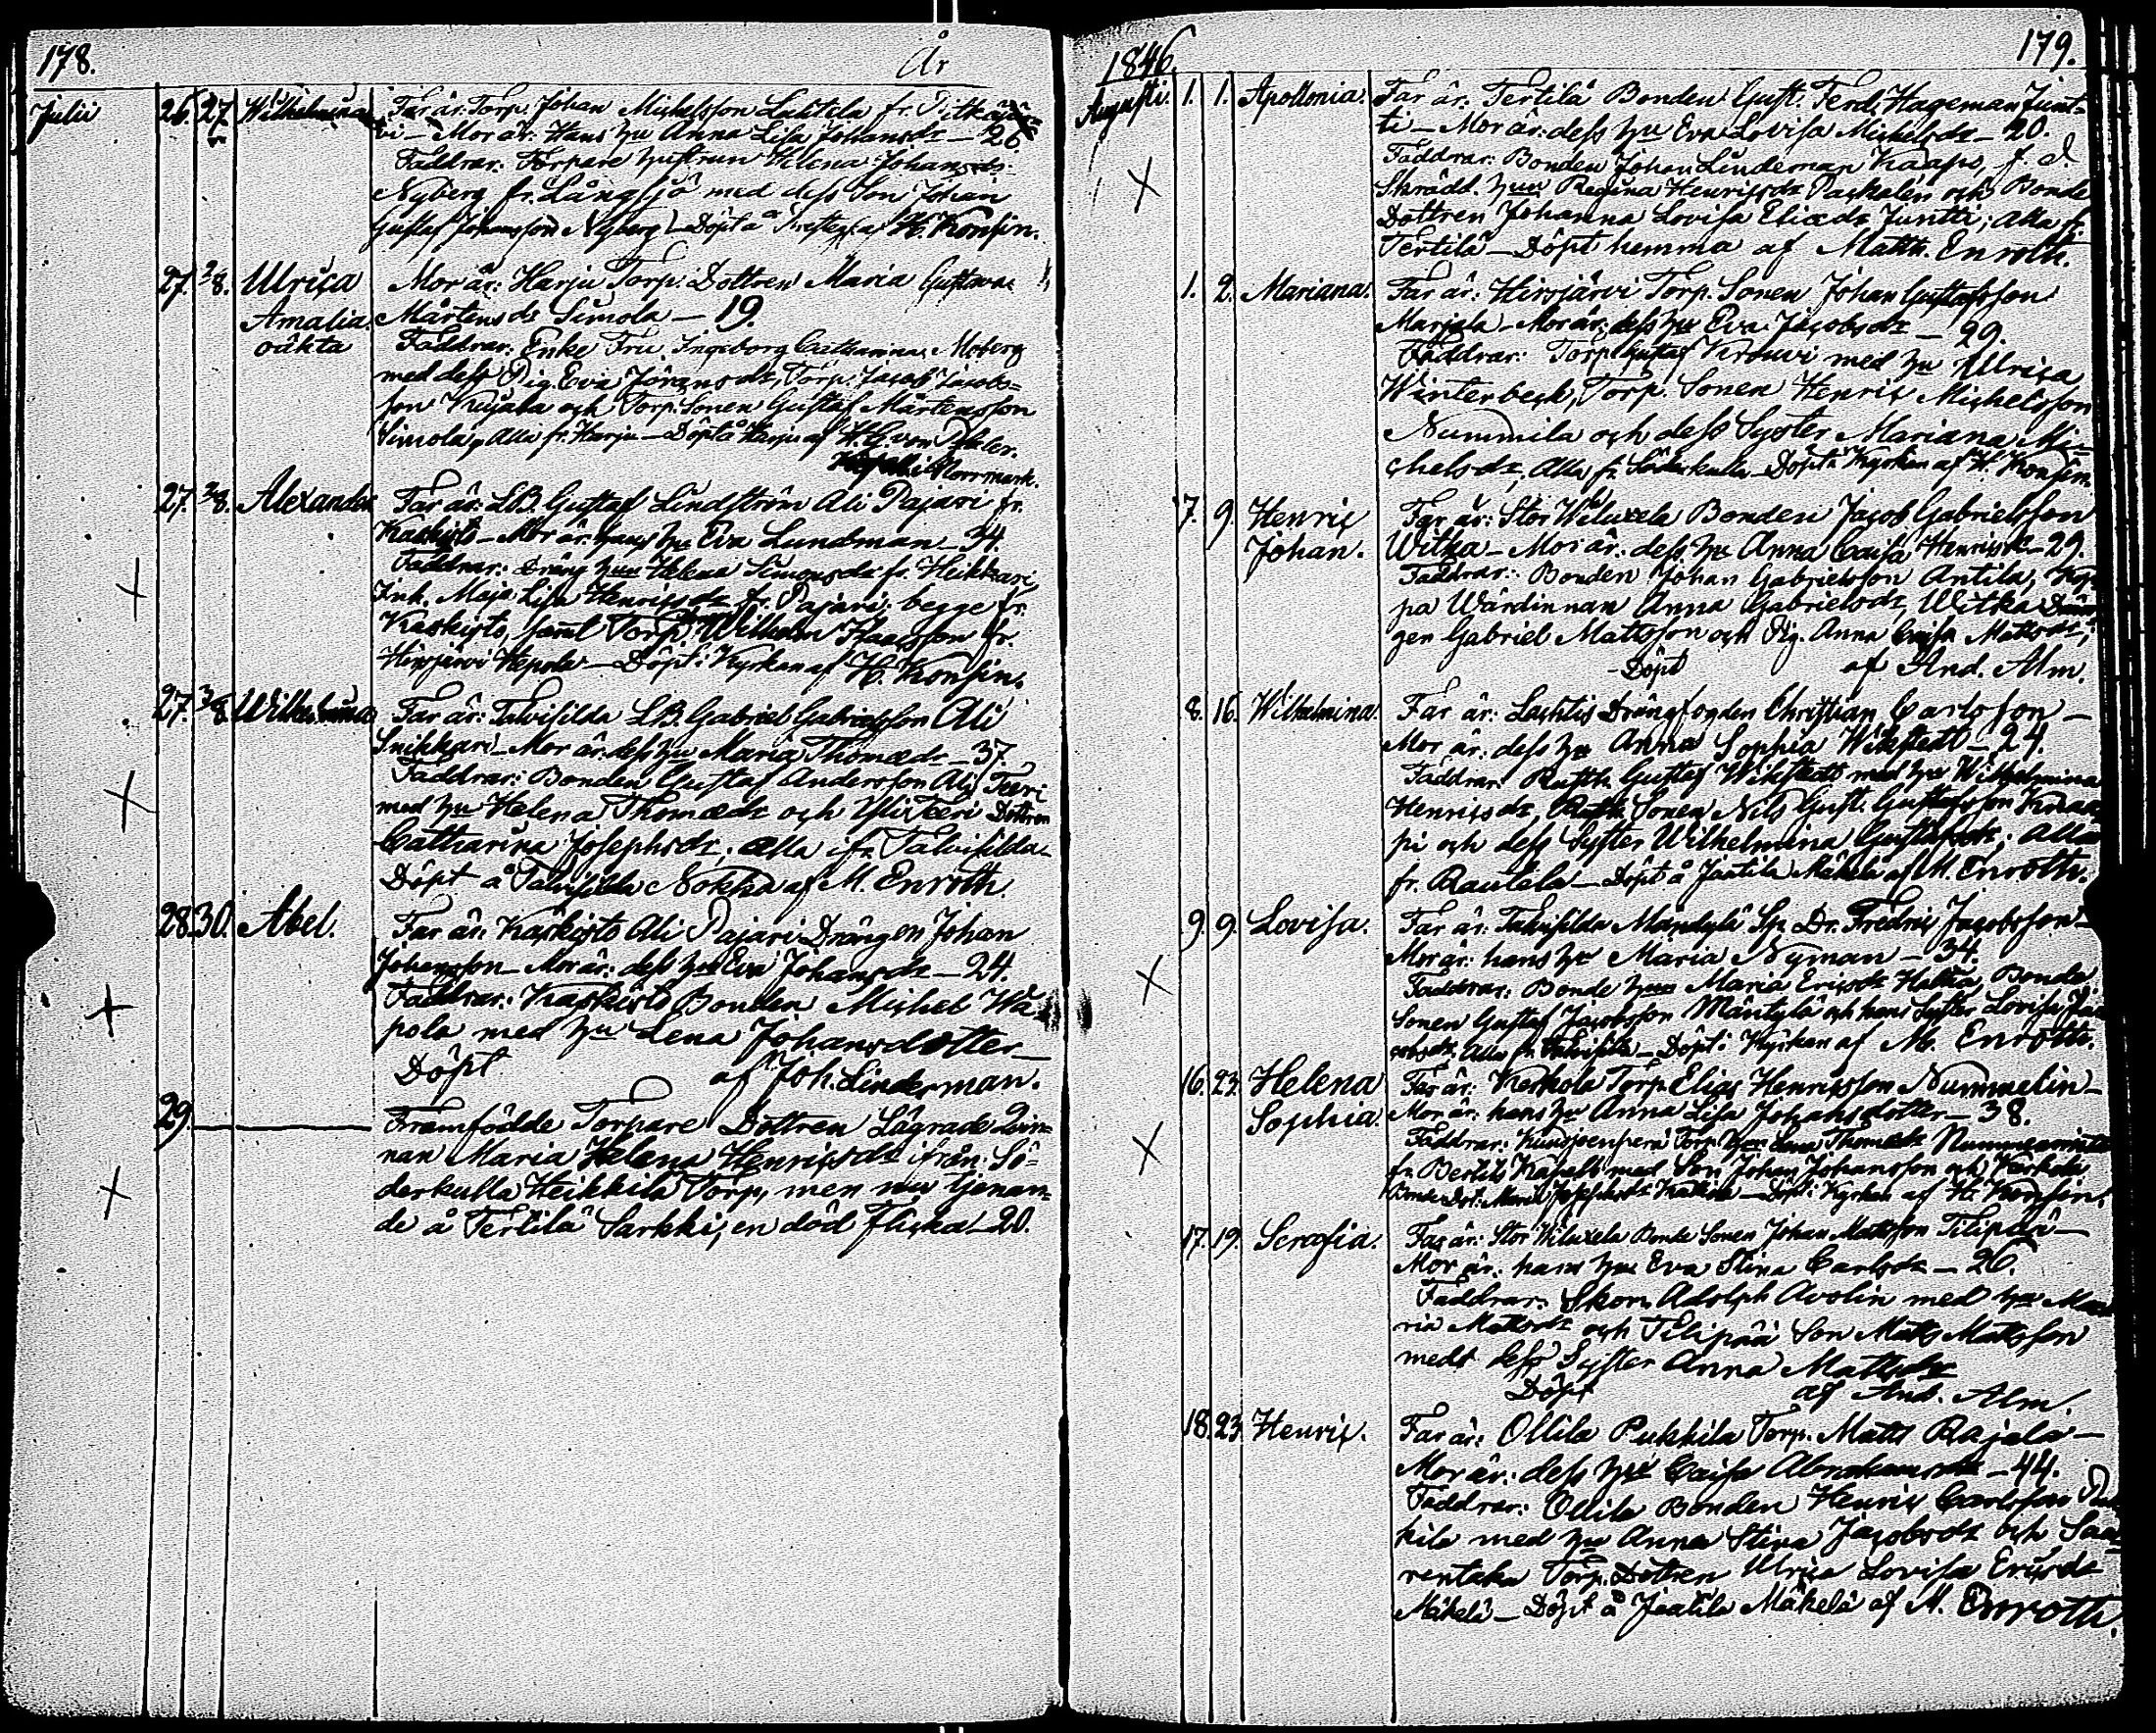 178.
År
Julii 26. 27. Wilhelmina. Far är: Torp. Johan Michelsson Lahtela fr. Pitkäjär=
vi – Mor är: Hans hu Anna Lisa Johansdr – 26.
Faddrar: Torpare hustrun Helena Johansdr
Nyberg fr. Långsjö med dess Son Johan
Gustaf Johansson Nyberg – Döpt å af H. Konsin.
27. 2/8. Ulrica Mor är: Harju Torp. Dottren Maria Gustava
Amalia. Mårtensdr Simola – 19.
oäkta Faddrar: Enke Fru Ingeborg Catharina Moberg
med dess Pig. Eva Jöransdr, Torp. Jacob Jacobs=
son Kujala och Torp. Sonen Gustaf Mårtensson
Simola, Alla fr. Harju – Döpt å Harju af H. G. von
i Norrmark.
27. 2/8. Alexander Far är: LB. Gustaf Lindström Ali Pajari fr.
Kaskisto – Mor är: hans hu Eva Lundman – 34.
Faddrar: Dräng hun Helena Simonsdr fr. Heikkari,
Inh. Maja Lisa Henricsdr fr. Pajari: begge fr.
Kaskisto, samt Torp. Wilhelm Isaacsson fr.
Hirsjärvi – Döpt i Kyrkan af H. Konsin.
27. 3/8. Wilhelmina Far är: Talvisilda LB. Gabriel Gabrielsson Ali
Snikkari – Mor är: dess hu Maria Thomædr – 37.
Faddrar: Bonden Gustaf Andersson Ali Teeri
med hu Helena Thomædr och Yli Teeri Dottren
Catharina Josephsdr; Alla ifr. Talvisilda –
Döpt å Talvisilda Nokka af M. Enroth.
28. 30. Abel. Far är: Kaskisto Ali Pajari Drängen Johan
Johansson – Mor är: dess hu Eva Johansdr – 24.
Faddrar: Kaskisto Bonden Michel Wä=
pola med hu Lena Johansdotter –
Döpt af Joh. Linderman.
29. Framfödde Torpare Dottren Lägrade Qvin=
nan Maria Helena Henricsdr ifrån Sö=
derkulla Heikkilä Torp, men nu Genan=
de å Tertilä Sarkki, en död Flicka – 20.
1846.
179.
Augusti. 1. 1. Apollonia. Far är: Tertilä Bonden Gust. Ferd. Hageman Junt=
ti – Mor är: dess hu Eva Lovisa Michelsdr – 20.
Faddrar: Bonden Johan Lindeman Kaapo, f. d.
Skrädd. hun Regina Henricsdr Paskalin och Bonde
Dottren Johanna Lovisa Eliædr Juntti; Alla fr.
Tertilä – Döpt hemma af Matth. Enroth.
1. 2. Mariana. Far är: Hirsjärvi Torp. Sonen Johan Gustafsson
Marjala – Mor är: dess hu Eva Jacobsdr – 29.
Faddrar: Torp. Gustaf Krouvi med hu Ulrica
Winterbeck, Torp. Sonen Henric Michelsson
Nummila och dess Syster Mariana Mi=
chelsdr, Alla fr. Söderkulla – Döpt i Kyrkan af H. Konsin.
7. 9. Henric Far är: Stor Wiluxela Bonden Jacob Gabrielsson
Johan. Witka – Mor är: dess hu Anna Caisa Henricsdr – 29.
Faddrar: Bonden Johan Gabrielsson Antila,
pa Wärdinnan Anna Gabrielsdr, Witka Drän
gen Gabriel Mattsson och Pig. Anna Caisa Mattsdr;
– Döpt af And. Alm.
8. 16. Wilhelmina. Far är: Lachtis Drängfogden Christian Carlsson –
Mor är: dess hu Anna Sophia Wikstedt – 24.
Faddrar: Rusth. Gustaf Wikstedt med hu Wilhelmina
Henricsdr, Rusth. Sonen Nils Gust. Gustafsson Knaa=
pi och dess Syster Wilhelmina Gustafsdr; Alla
fr. Rautela – Döpt å Jaatila Mäkelä af M. Enroth.
9. 9. Lovisa. Far är: Talvisilda Mändylä Sp. Dr. Fredric Jacobsson –
Mor är: hans hu Maria Nyman – 34.
Faddrar: Bonde hun Maria Ericsdr Hakka, Bonde
Sonen Gustaf Jacobsson Mäntylä och hans Syster Lovisa Ja=
cobsdr, Alla fr. Talvisilda – Döpt i Kyrkan af M. Enroth.
16. 23. Helena Far är: Kerkola Torp. Elias Henricsson Nummelin –
Sophia. Mor är: hans hu Anna Lisa Johansdotter – 38.
Faddrar: Torp. hun Lena Thomædr
fr. Bertils Kapell med Son Johan Johansson och Kerkola
Bonde Dott. Maria Josephsdr – Döpt i Kyrkan af H. Konsin.
17. 19. Serafia. Far är: Stor Wiluxela Bonde Sonen Johan Mattsson Filipää –
Mor är: hans hu Eva Stina Carlsdr – 26.
Faddrar: Skom. Adolph Avolin med hu Ma=
ria Mattsdr och Filipää Son Matts Mattsson
medt dess Syster Anna Mattsdr
Döpt af And. Alm.
18. 23. Henric. Far är: Ollila Pukkila Torp. Matts Rajala –
Mor är: dess hu Caisa Abrahamsdr – 44.
Faddrar: Ollila Bonden Henric Carlsson Puk
kila med hu Anna Stina Jacobsdr och Saa=
rentaka Torp. Dottren Ulrica Lovisa Ericsdr
Mäkelä – Döpt å Jaatila Mäkelä af M. Enroth.